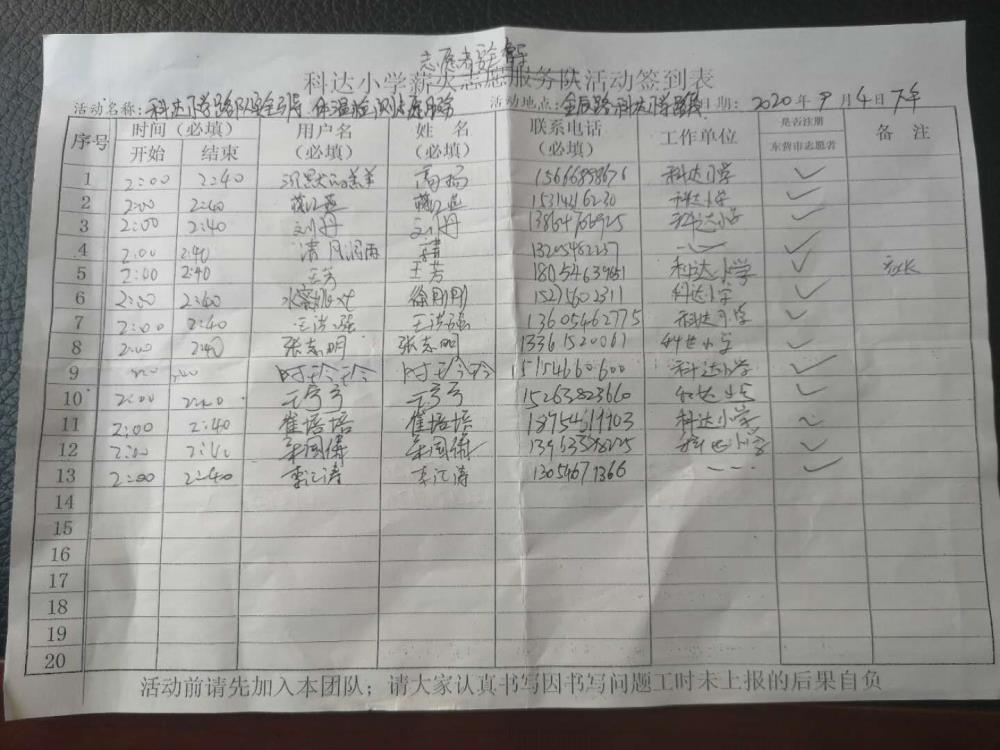 志愿者
科达小学薪火志愿服务队活动签到表
活动名称：科达小学路队安全引导 体温检测志愿服务 活动地点：金辰路科达小学 日期：2020年9月4日下午
序号 时间（必填） 用户名（必填） 姓名（必填） 联系电话（必填） 工作单位 是否注册东营市志愿者 备注
开始 结束
1 2:00 2:40 沉默的羔羊 15666898676 科达小学 ✓
2 2:00 2:40 科达小学 ✓
3 2:00 2:40 刘丹 刘丹 科达小学 ✓
4 2:00 2:40 清风润雨 ✓
5 2:00 2:40 王芳 王芳 科达小学 ✓
6 2:00 2:40 水蜜桃 徐刚刚 科达小学 ✓
7 2:00 2:40 13605462775 科达小学 ✓
8 2:00 2:40 张志明 张志明 13361520061 科达小学 ✓
9 2:00 2:40 时玲玲 时玲玲 15154660600 科达小学 ✓
10 2:00 2:40 15263823660 科达小学 ✓
11 2:00 2:40 崔培培 崔培培 18954619903 科达小学
12 2:00 2:40 科达小学 ✓
13 2:00 2:40 李江涛 李江涛 13054671366 ✓
14
15
16
17
18
19
20
活动前请先加入本团队；请大家认真书写因书写问题工时未上报的后果自负